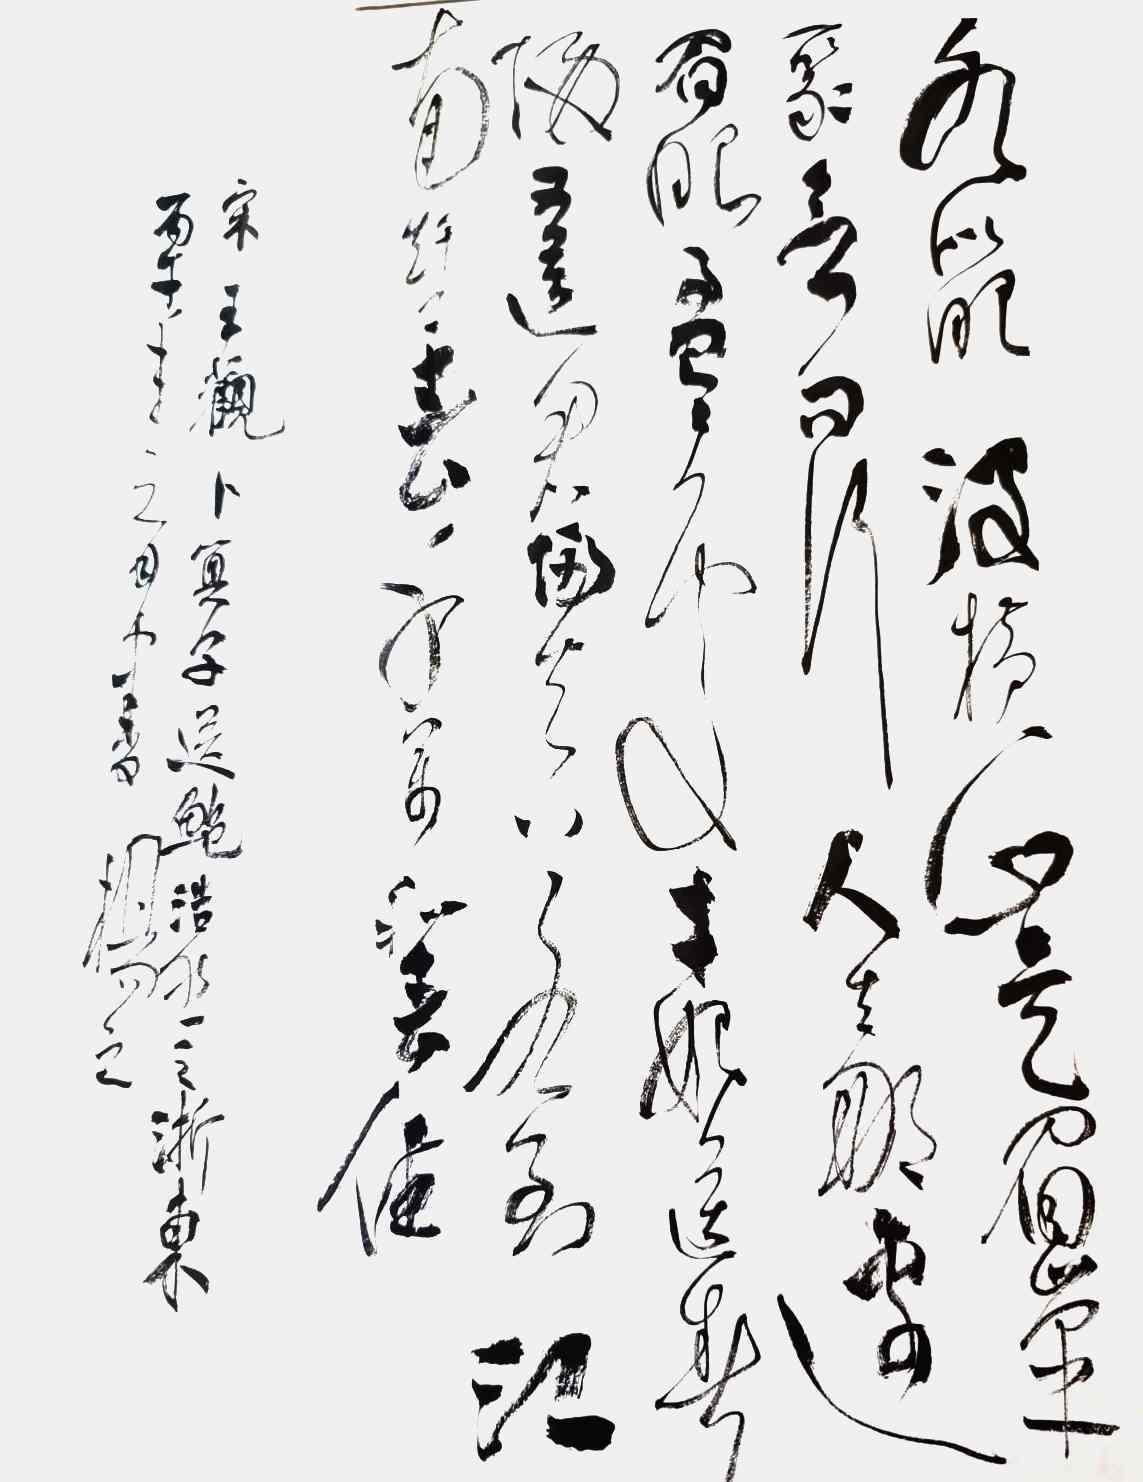 水是眼波橫山是眉峯
聚欲問行人去那邊
眉眼盈盈處才始送春
歸又送君歸去若到江
南趕上春千萬和春住
宋王觀卜算子送鮑浩然之浙東
丙午之月中書